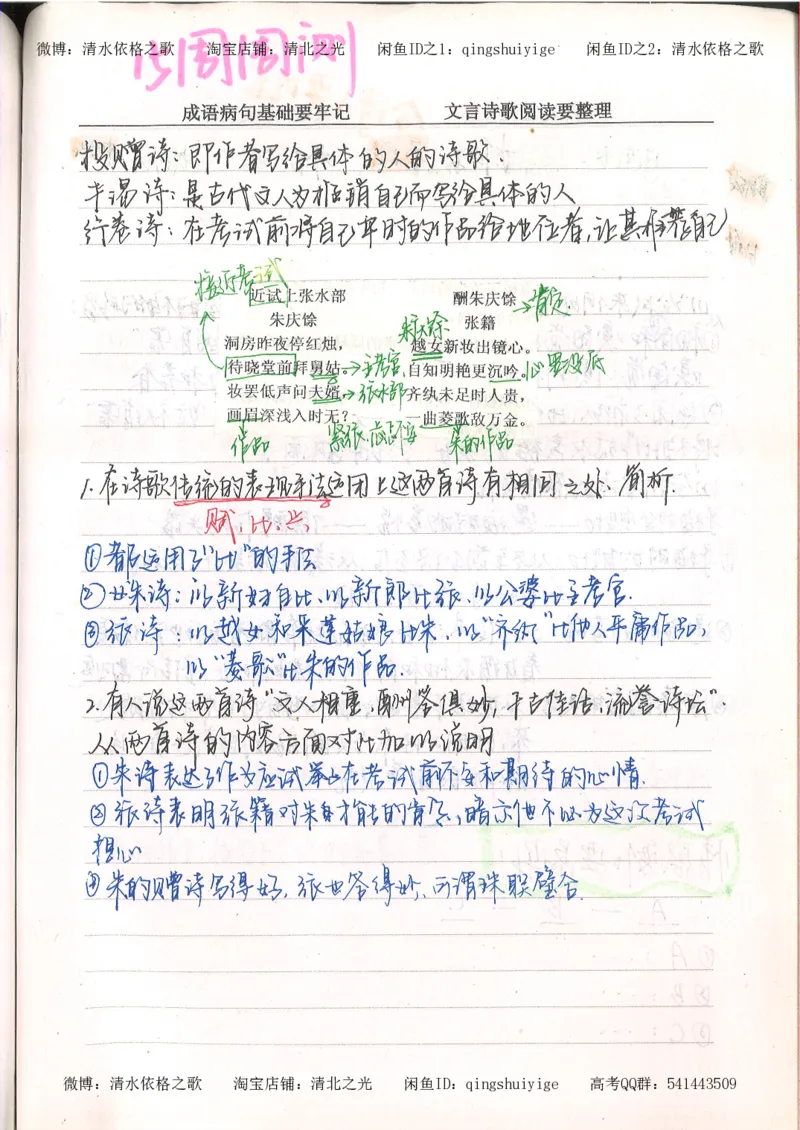 微博：清水依格之歌 淘宝店铺：清北之光 闲鱼ID之1：qingshuiyige 闲鱼ID之2：清水依格之歌
15周周测
成语病句基础要牢记 文言诗歌阅读要整理
投赠诗：即作者写给具体的人的诗歌．
干谒诗：是古代文人为推销自己而写给具体的人
行卷诗：在考试前将自己平时的作品给地位者，让其推荐自己
接近考试
近试上张水部 酬朱庆馀 →肯定．
朱庆馀 张籍
朱庆馀
洞房昨夜停红烛， 越女新妆出镜心。
待晓堂前拜舅姑。→主考官 自知明艳更沉吟。心里没底
妆罢低声问夫婿→张水部 齐纨未足时人贵，
画眉深浅入时无？ 一曲菱歌敌万金。
作品 紧张．忐忑不安 朱的作品
1.在诗歌传统的表现手法运用上这两首诗有相同之处．简析．
赋．比．兴
①都运用了“比”的手法
②朱诗：以新妇自比、以新郎比张、以公婆比主考官．
③张诗：以越女和采莲姑娘比朱，以“齐纨”比他人平庸作品，
以“菱歌”比朱的作品．
2.有人说这两首诗“文人相重，酬答俱妙，千古佳话，流誉诗坛”．
从两首诗的内容方面对比加以说明
①朱诗表达了作为应试举子在考试前不安和期待的心情．
②张诗表明张籍对朱才能的肯定，暗示他不必为这次考试
担心
③朱的赠诗写得好，张也答得妙、可谓珠联璧合．
微博：清水依格之歌 淘宝店铺：清北之光 闲鱼ID：qingshuiyige 高考QQ群：541443509